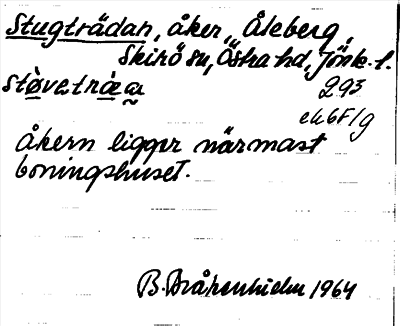 Stugträdan, åker, Åleberg,
Skirö sn, Östra hd, Jönk. l.
293
ek 6F/g
Åkern ligger närmast
boningshuset.
B. Bråkenhielm 1964